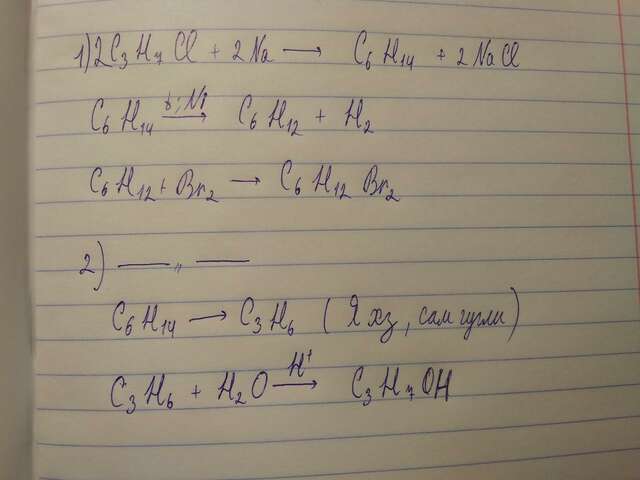 1) 2C₃H₇Cl + 2Na → C₆H₁₄ + 2NaCl
C₆H₁₄ t; Ni → C₆H₁₂ + H₂
C₆H₁₂ + Br₂ → C₆H₁₂Br₂
2) —— „ ——
C₆H₁₄ → C₃H₆ (Я хз, сам гугли)
C₃H₆ + H₂O H⁺ → C₃H₇OH